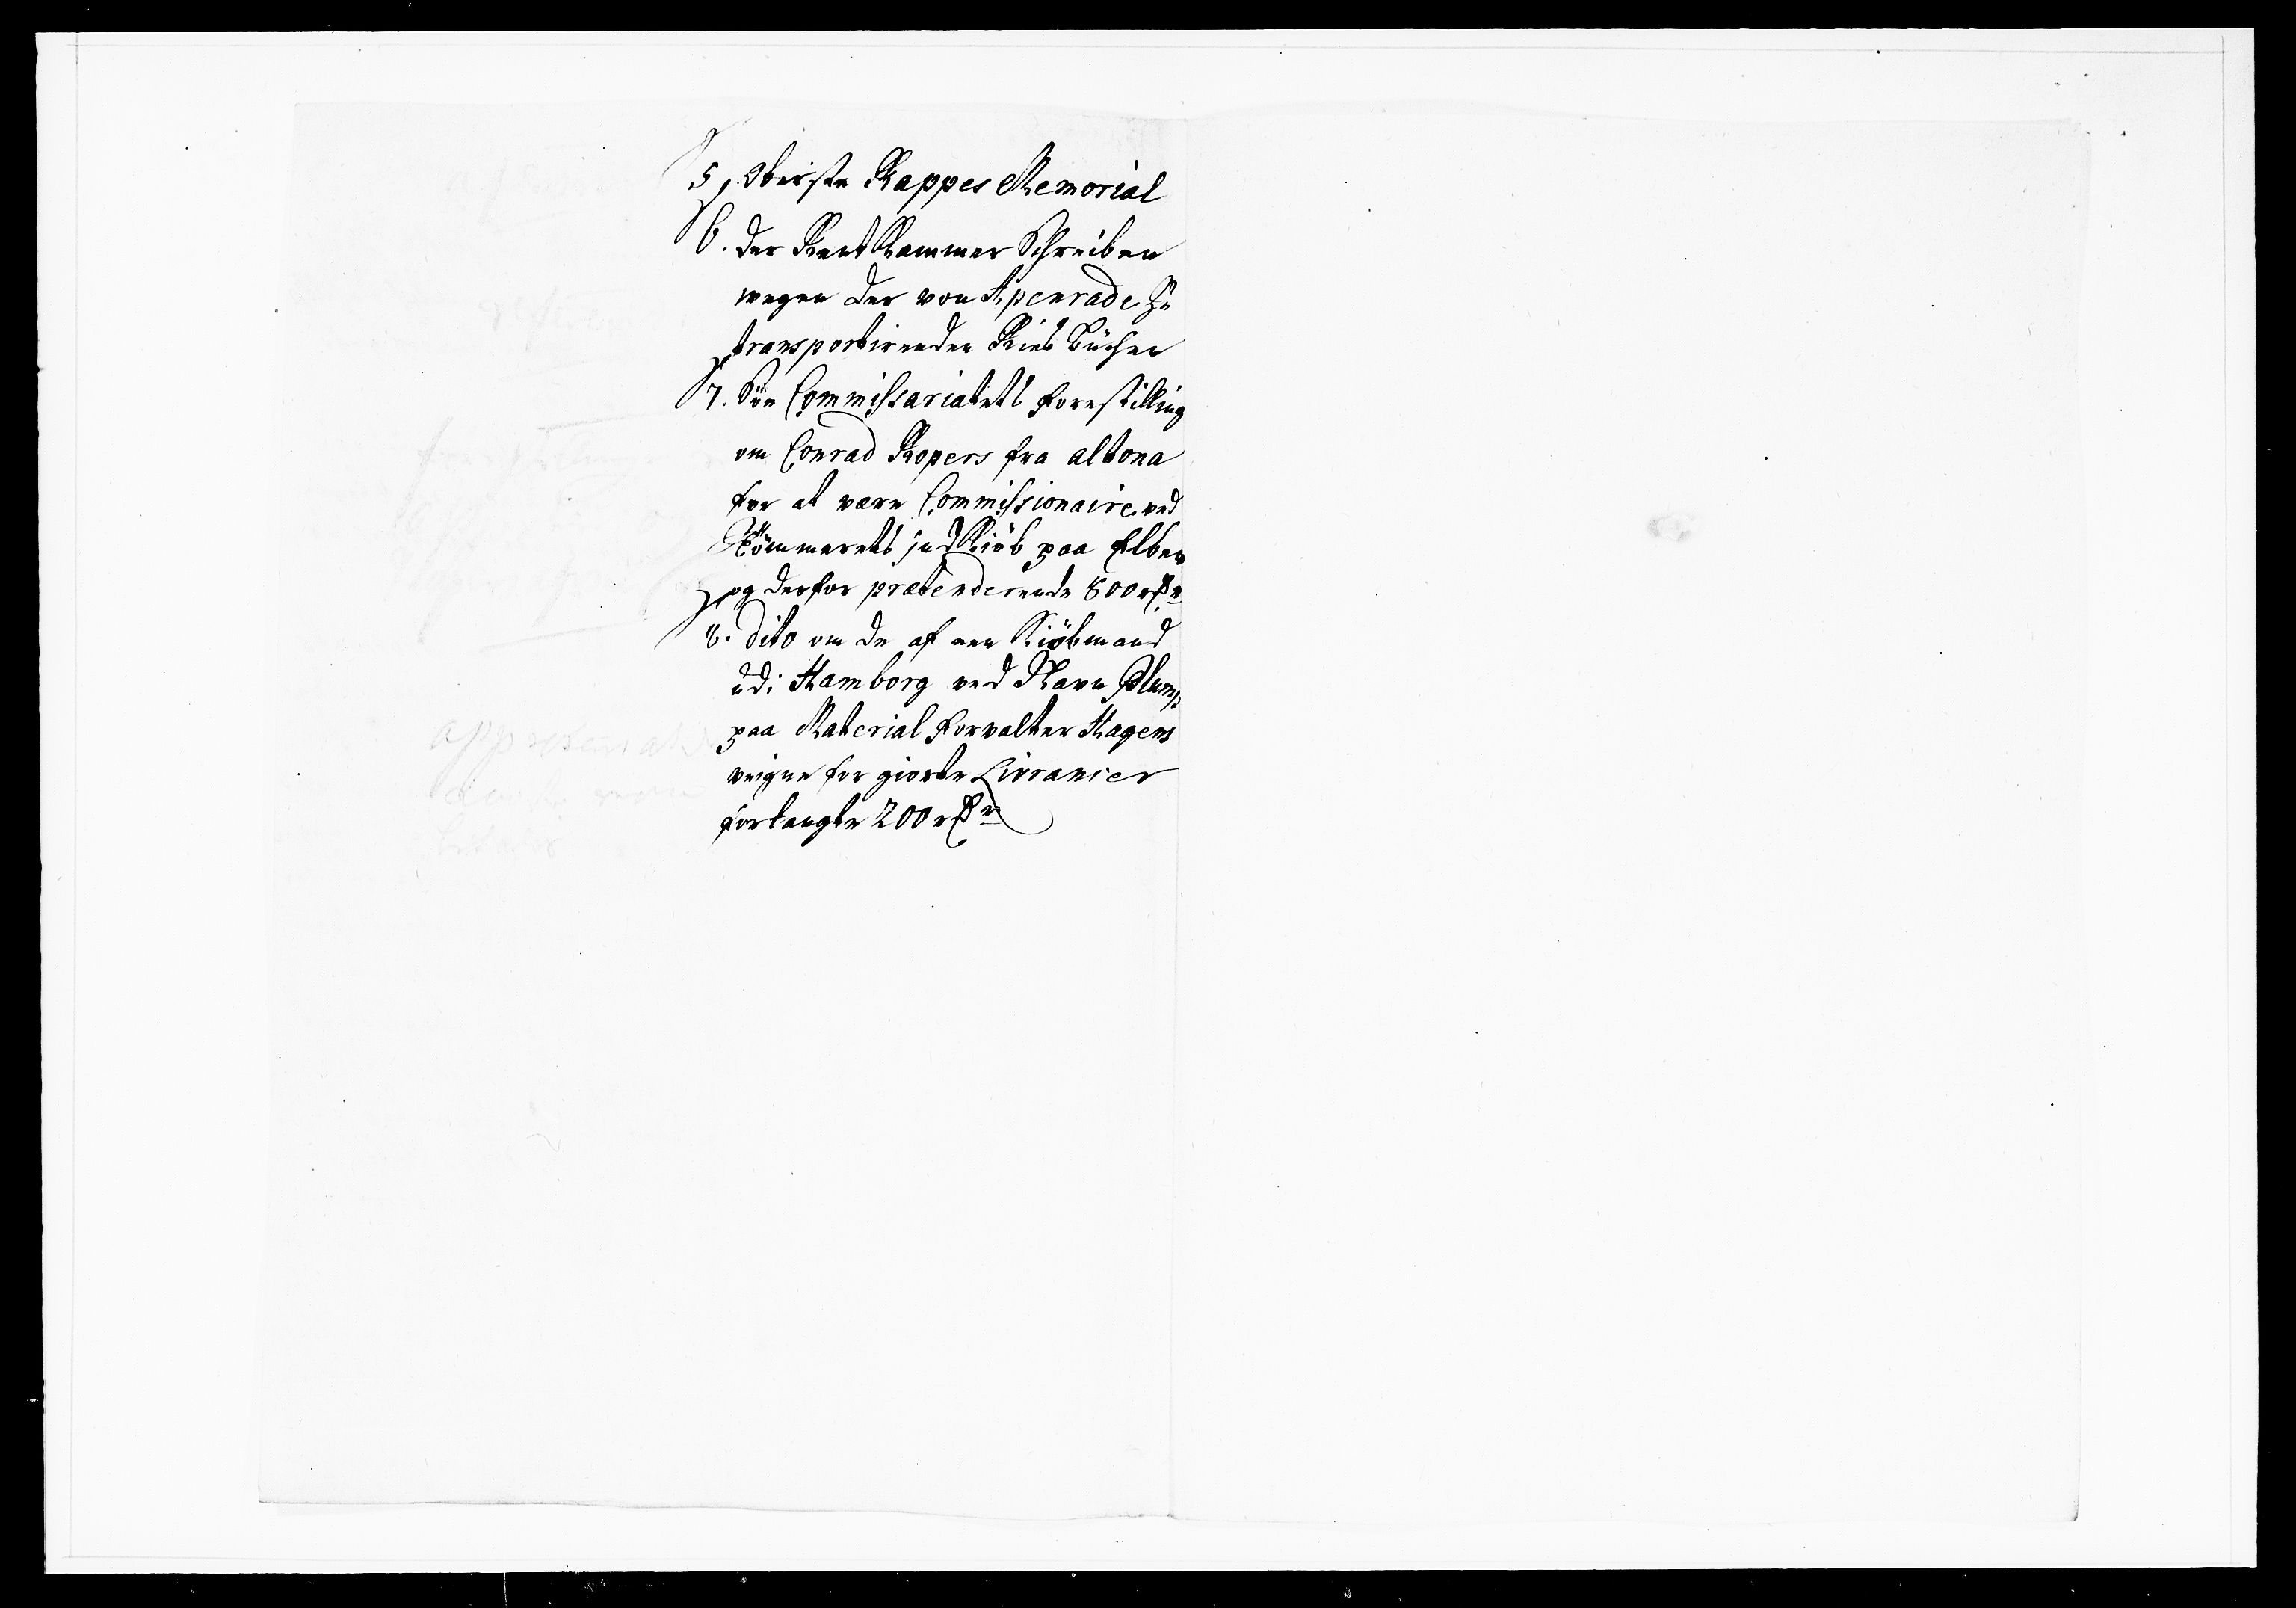 5, Oberste Kappes Memorial
6. der Rent Kammer Schreiben
wegen der von Apenrade zu
transportirenden
7. Søe Commissariatets Forestilling
om Conrad Ropers fra altona
for at være Commissionaire ved
Tömmerets indKiöb paa Elben
og derfor prætenderende 800 rdr
8. dito om de af een Kiöbmand
udi Hamborg ved Navn Plump
paa Material Forvalter Hagens
veigne for giorte Livrancer
forlangte 200 rdr